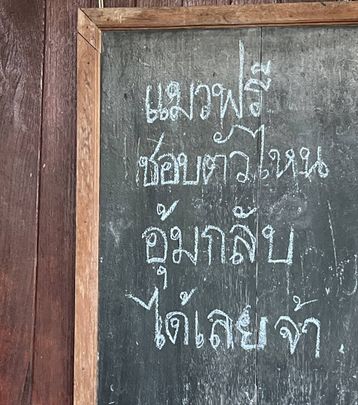 แมวฟรี
ชอบตัวไหน
อุ้มกลับ
ได้เลยจ้า